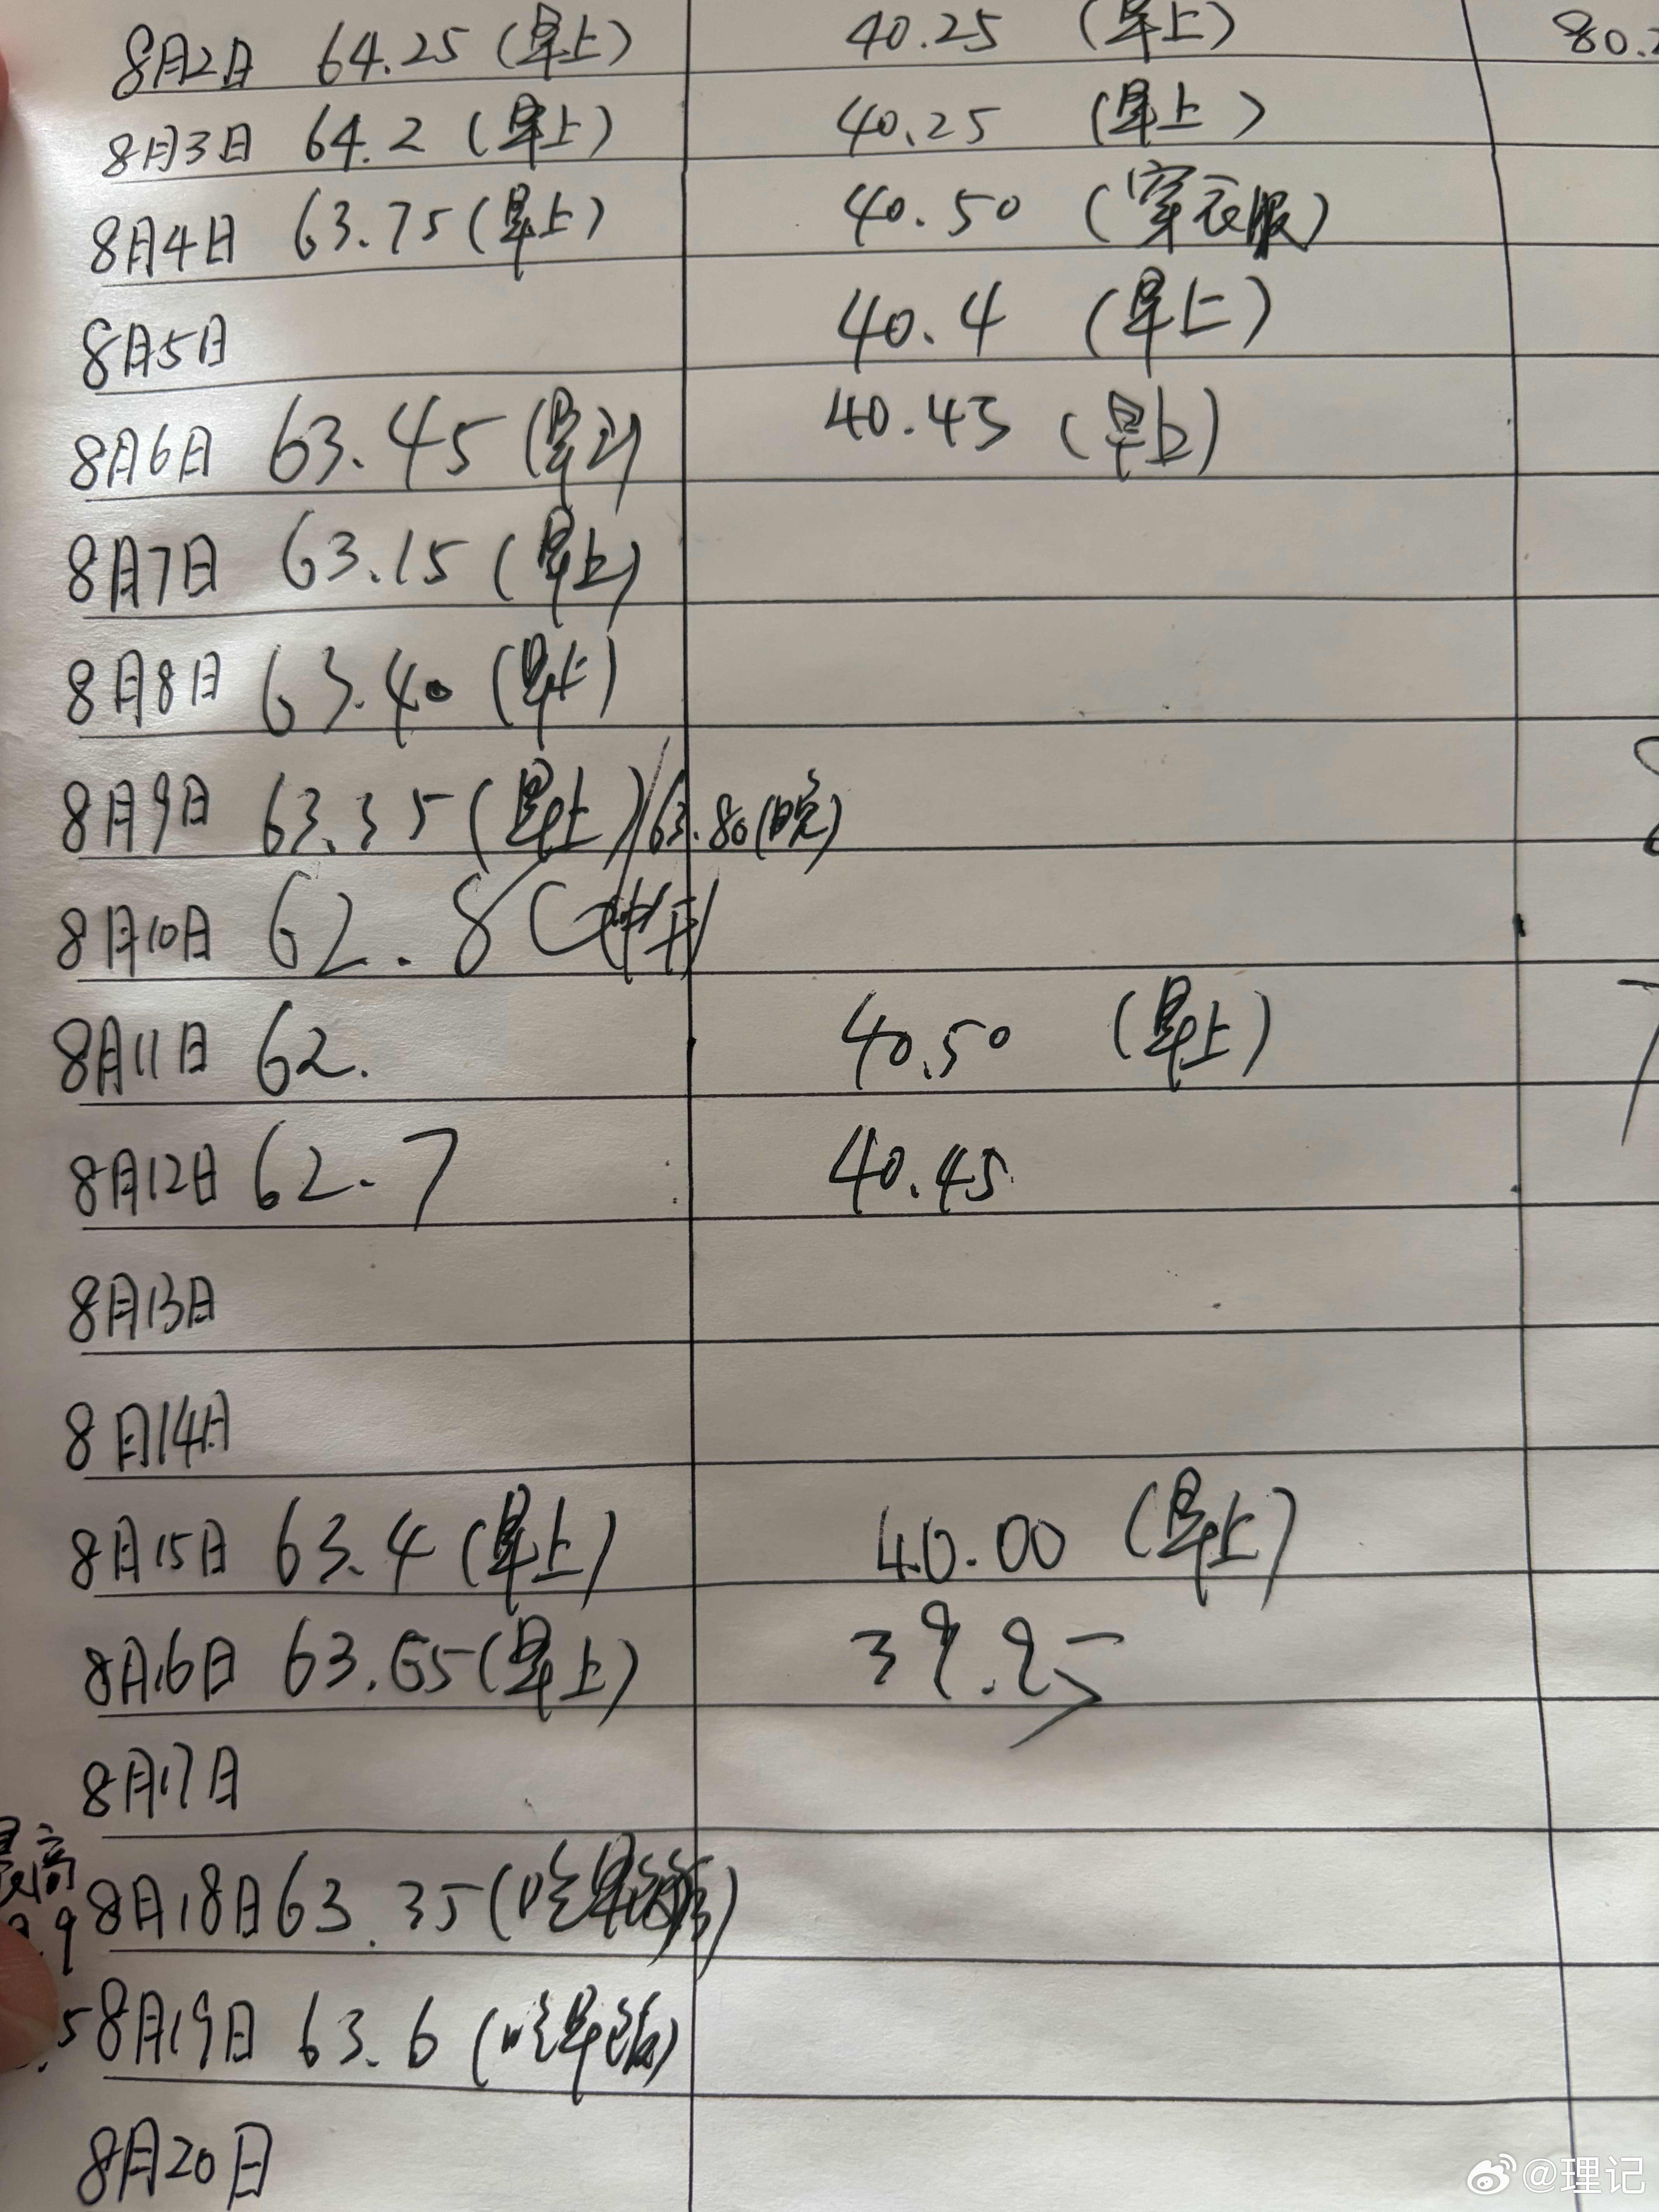 8月2日 64.25 (早上) 40.25 (早上) 80.
8月3日 64.2 (早上) 40.25 (早上)
8月4日 63.75 (早上) 40.50 (穿衣服)
8月5日 40.4 (早上)
8月6日 63.45 (早上) 40.45 (早上)
8月7日 63.15 (早上)
8月8日 63.40 (早上)
8月9日 63.35 (早上)/63.80 (晚)
8月10日 62.8
8月11日 62. 40.50 (早上)
8月12日 62.7 40.45
8月13日
8月14日
8月15日 63.4 (早上) 40.00 (早上)
8月16日 63.65 (早上) 39.95
8月17日
最高
8月18日 63.35 (吃早饭)
.9
8月19日 63.6 (吃早饭)
.5
8月20日
@理记